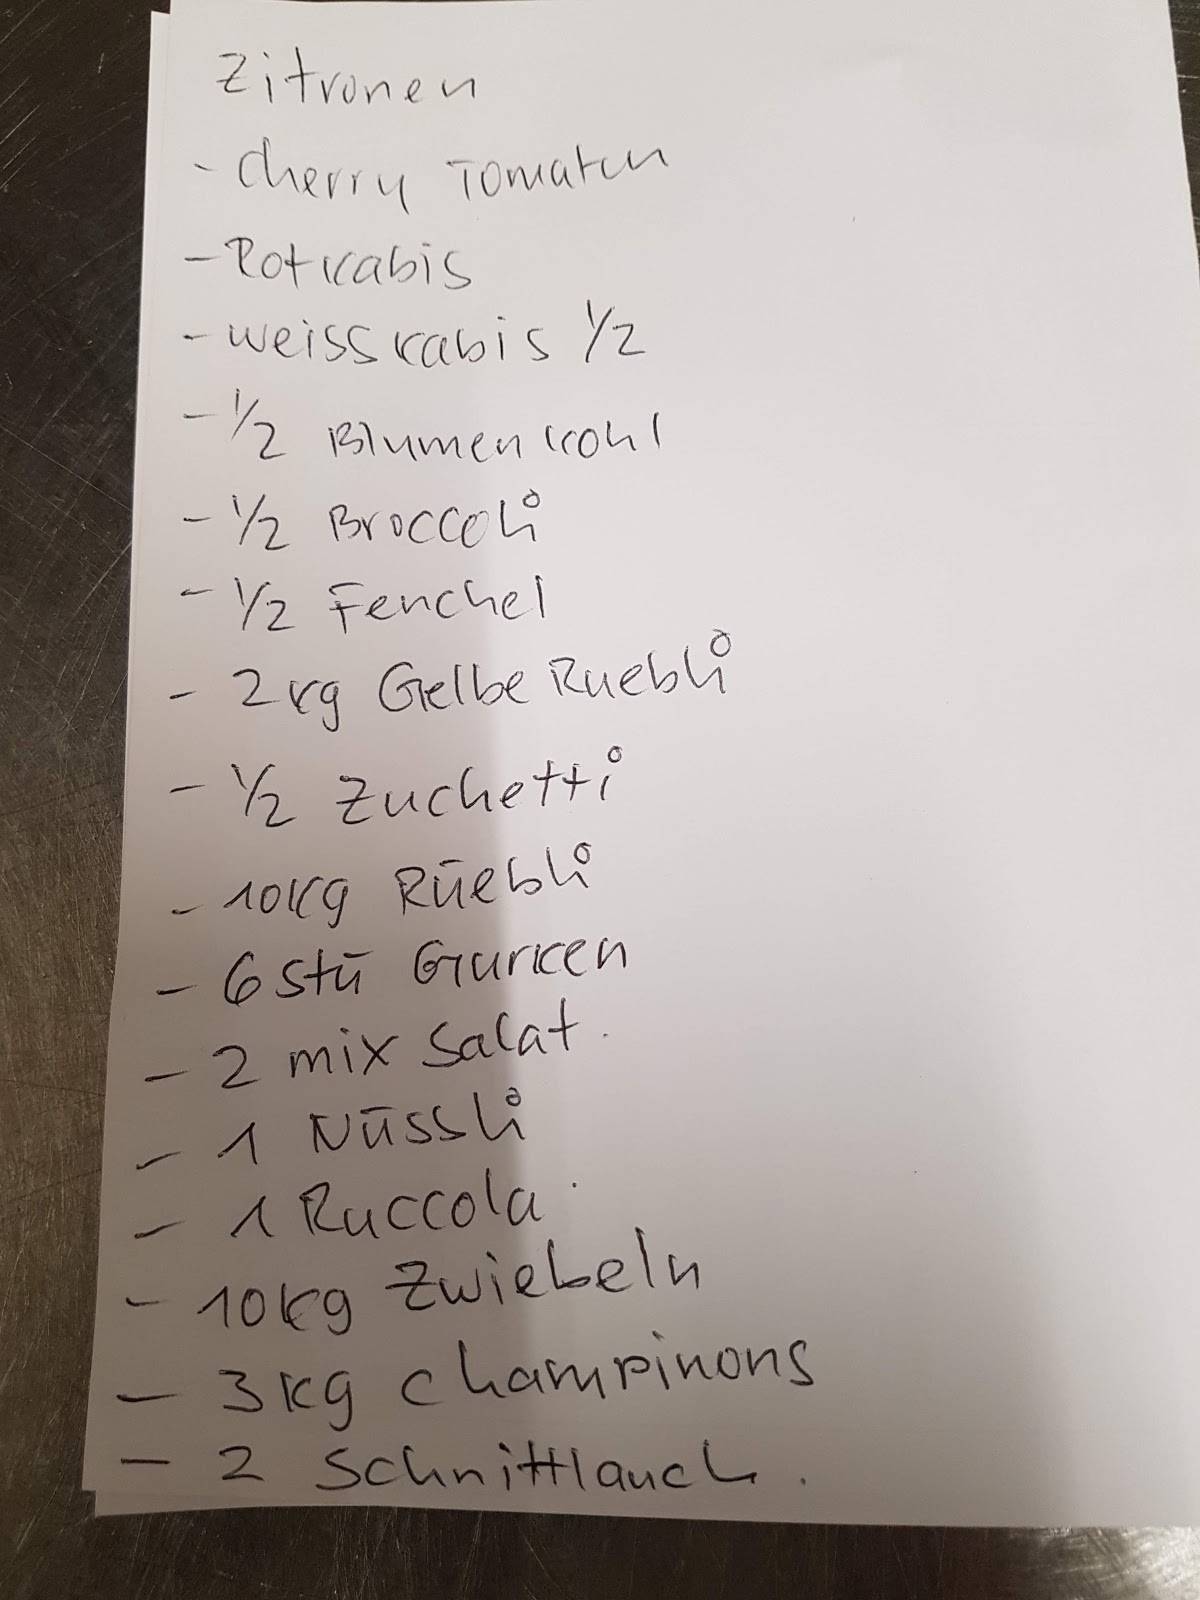 Zitronen
- Cherry Tomaten
- Rotkabis
- weisskabis 1/2
- 1/2 Blumenkohl
- 1/2 Broccoli
- 1/2 Fenchel
- 2kg Gelbe Ruebli
- 1/2 Zuchetti
- 10kg Rüebli
- 6 stü Gurken
- 2 mix Salat.
- 1 Nüssli
- 1 Ruccola.
- 10kg Zwiebeln
- 3kg champinons
- 2 Schnittlauch.